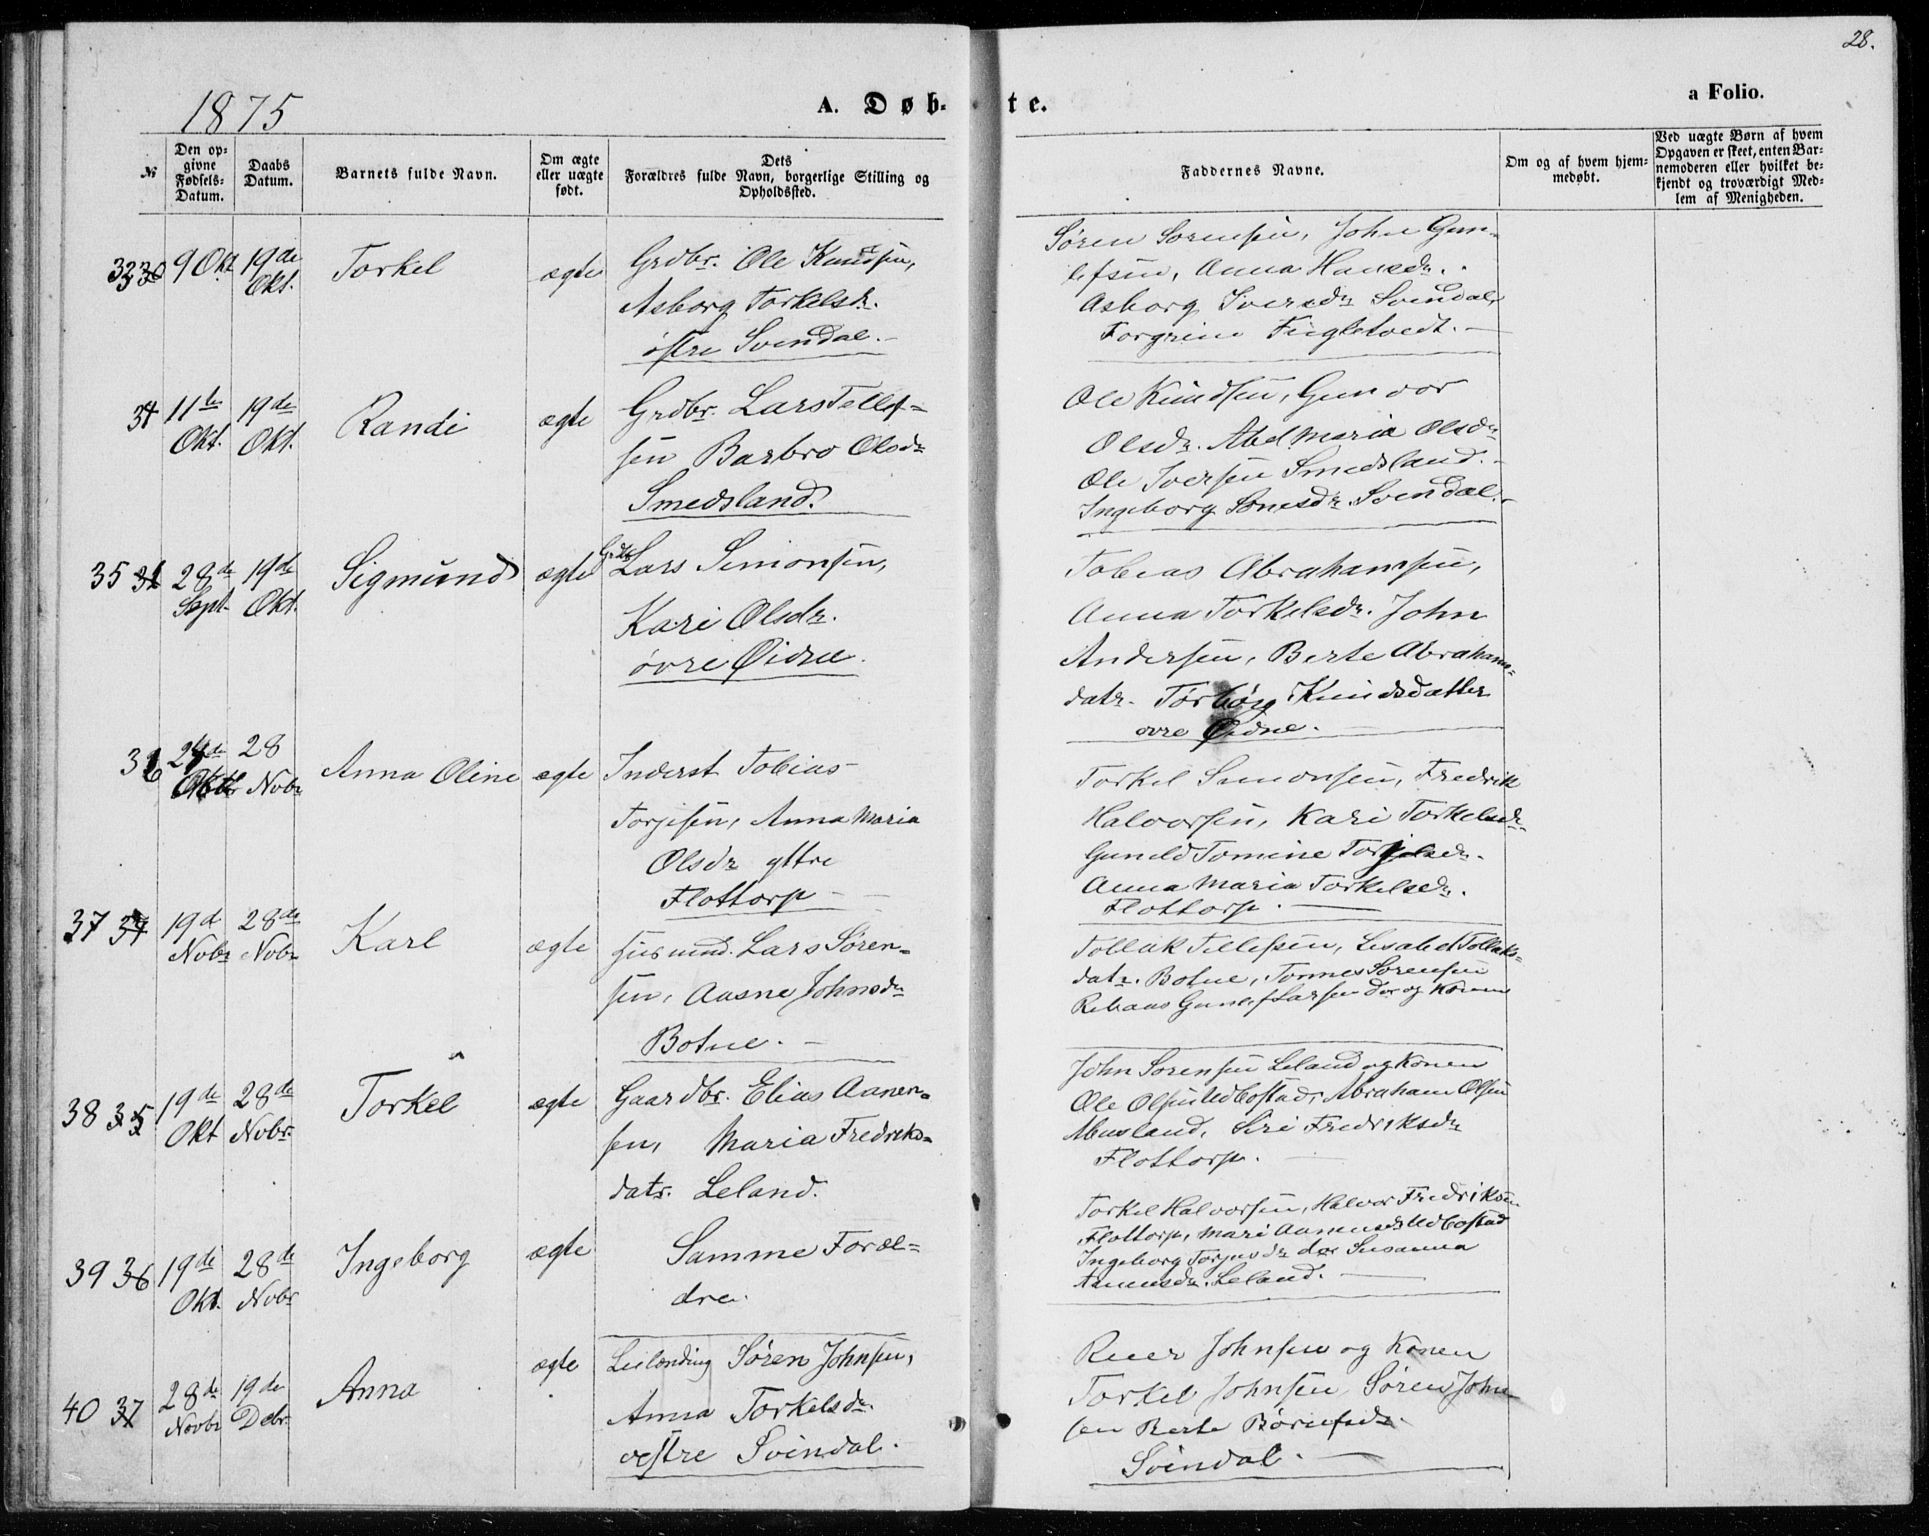 28.
1875
A. Døb-
te.
a Folio.
№
Den op-
givne
Fødsels-
Datum.
Daabs
Datum.
Barnets fulde Navn.
Om ægte
eller uægte
født.
Dets
Forældres fulde Navn, borgerlige Stilling og
Opholdssted.
Faddernes Navne.
Om og af hvem hjem-
medøbt.
Ved uægte Børn af hvem
Opgaven er skeet, enten Bar-
nemoderen eller hvilket be-
kjendt og troværdigt Med-
lem af Menigheden.
9 Okt
19de
Okt.
Torkel
ægte
Grdbr. Ole Knudsen,
Asborg Torkelsdr.
østre Svendal.
Søren Sørensen, John Gun-
lefsen, Anna Hansdr.
Asborg Iversdr Svendal,
Torgrim
34
11te
Okt.
19de
Okt.
Randi
ægte
Grdbr. Lars Tellef-
sen Barbro Olsdr
Smedsland.
Ole Knudsen, Gunvor
Olsdr. Abel Maria Olsdr
Ole Iversen Smedsland.
Ingeborg Svendal.
35 31
28de
Sept.
19de
Okt.
Sigmund
ægte
Grdb
Lars Simonsen,
Kari Olsdr.
øvre Øidne.
Tobias Abrahamsen,
Anna Torkelsdr. John
Andersen, Berte Abrahams-
datr. Torborg Knudsdatter
øvre Øidne.
36
24de
Oktbr
28
Nobr
Anna Oline
ægte
Inderst Tobias
Torjesen, Anna Maria
Olsdr yttre
Flottorp
Torkel Simonsen, Fredrik
Halvorsen, Kari Torkelsdr
Gunild Tomine Torjesdr.
Anna Maria Torkelsdr.
Flottorp.
37 34
19d
Nobr
28de
Nobr
Karl
ægte
Husmd. Lars Søren-
sen, Aasne Johnsdr
Botne.
Tollak Tellefsen, Lisabet Tollaks-
datr. Botne, Tønnes Sørensen
Larsen og Konen
38 35
19de
Okt
28de
Nobr.
Torkel
ægte
Gaardbr. Elias Aanen-
sen, Maria Fredriks-
datr. Leland.
John Sørensen Leland og Konen
Ole Olsen Udbostad, Abraham Olsen
Siri Fredriksdr
Flottorp.
39 36
19de
Okt.
28de
Nobr
Ingeborg
ægte
Samme Foræl-
dre.
Torkel Halvorsen, Halvor Fredriksen
Flottorp, Mari Aanensdr Udbostad
Ingeborg Torjusdr der Susanna
Aanensdr. Leland.
40 37
28de
Novbr
19de
Debr.
Anna
ægte
Leilending Søren Johnsen,
Anna Torkelsdr.
vestre Svindal.
Reier Johnsen og Konen
Torkel Johnsen, Søren John-
sen Berte
Svindal.